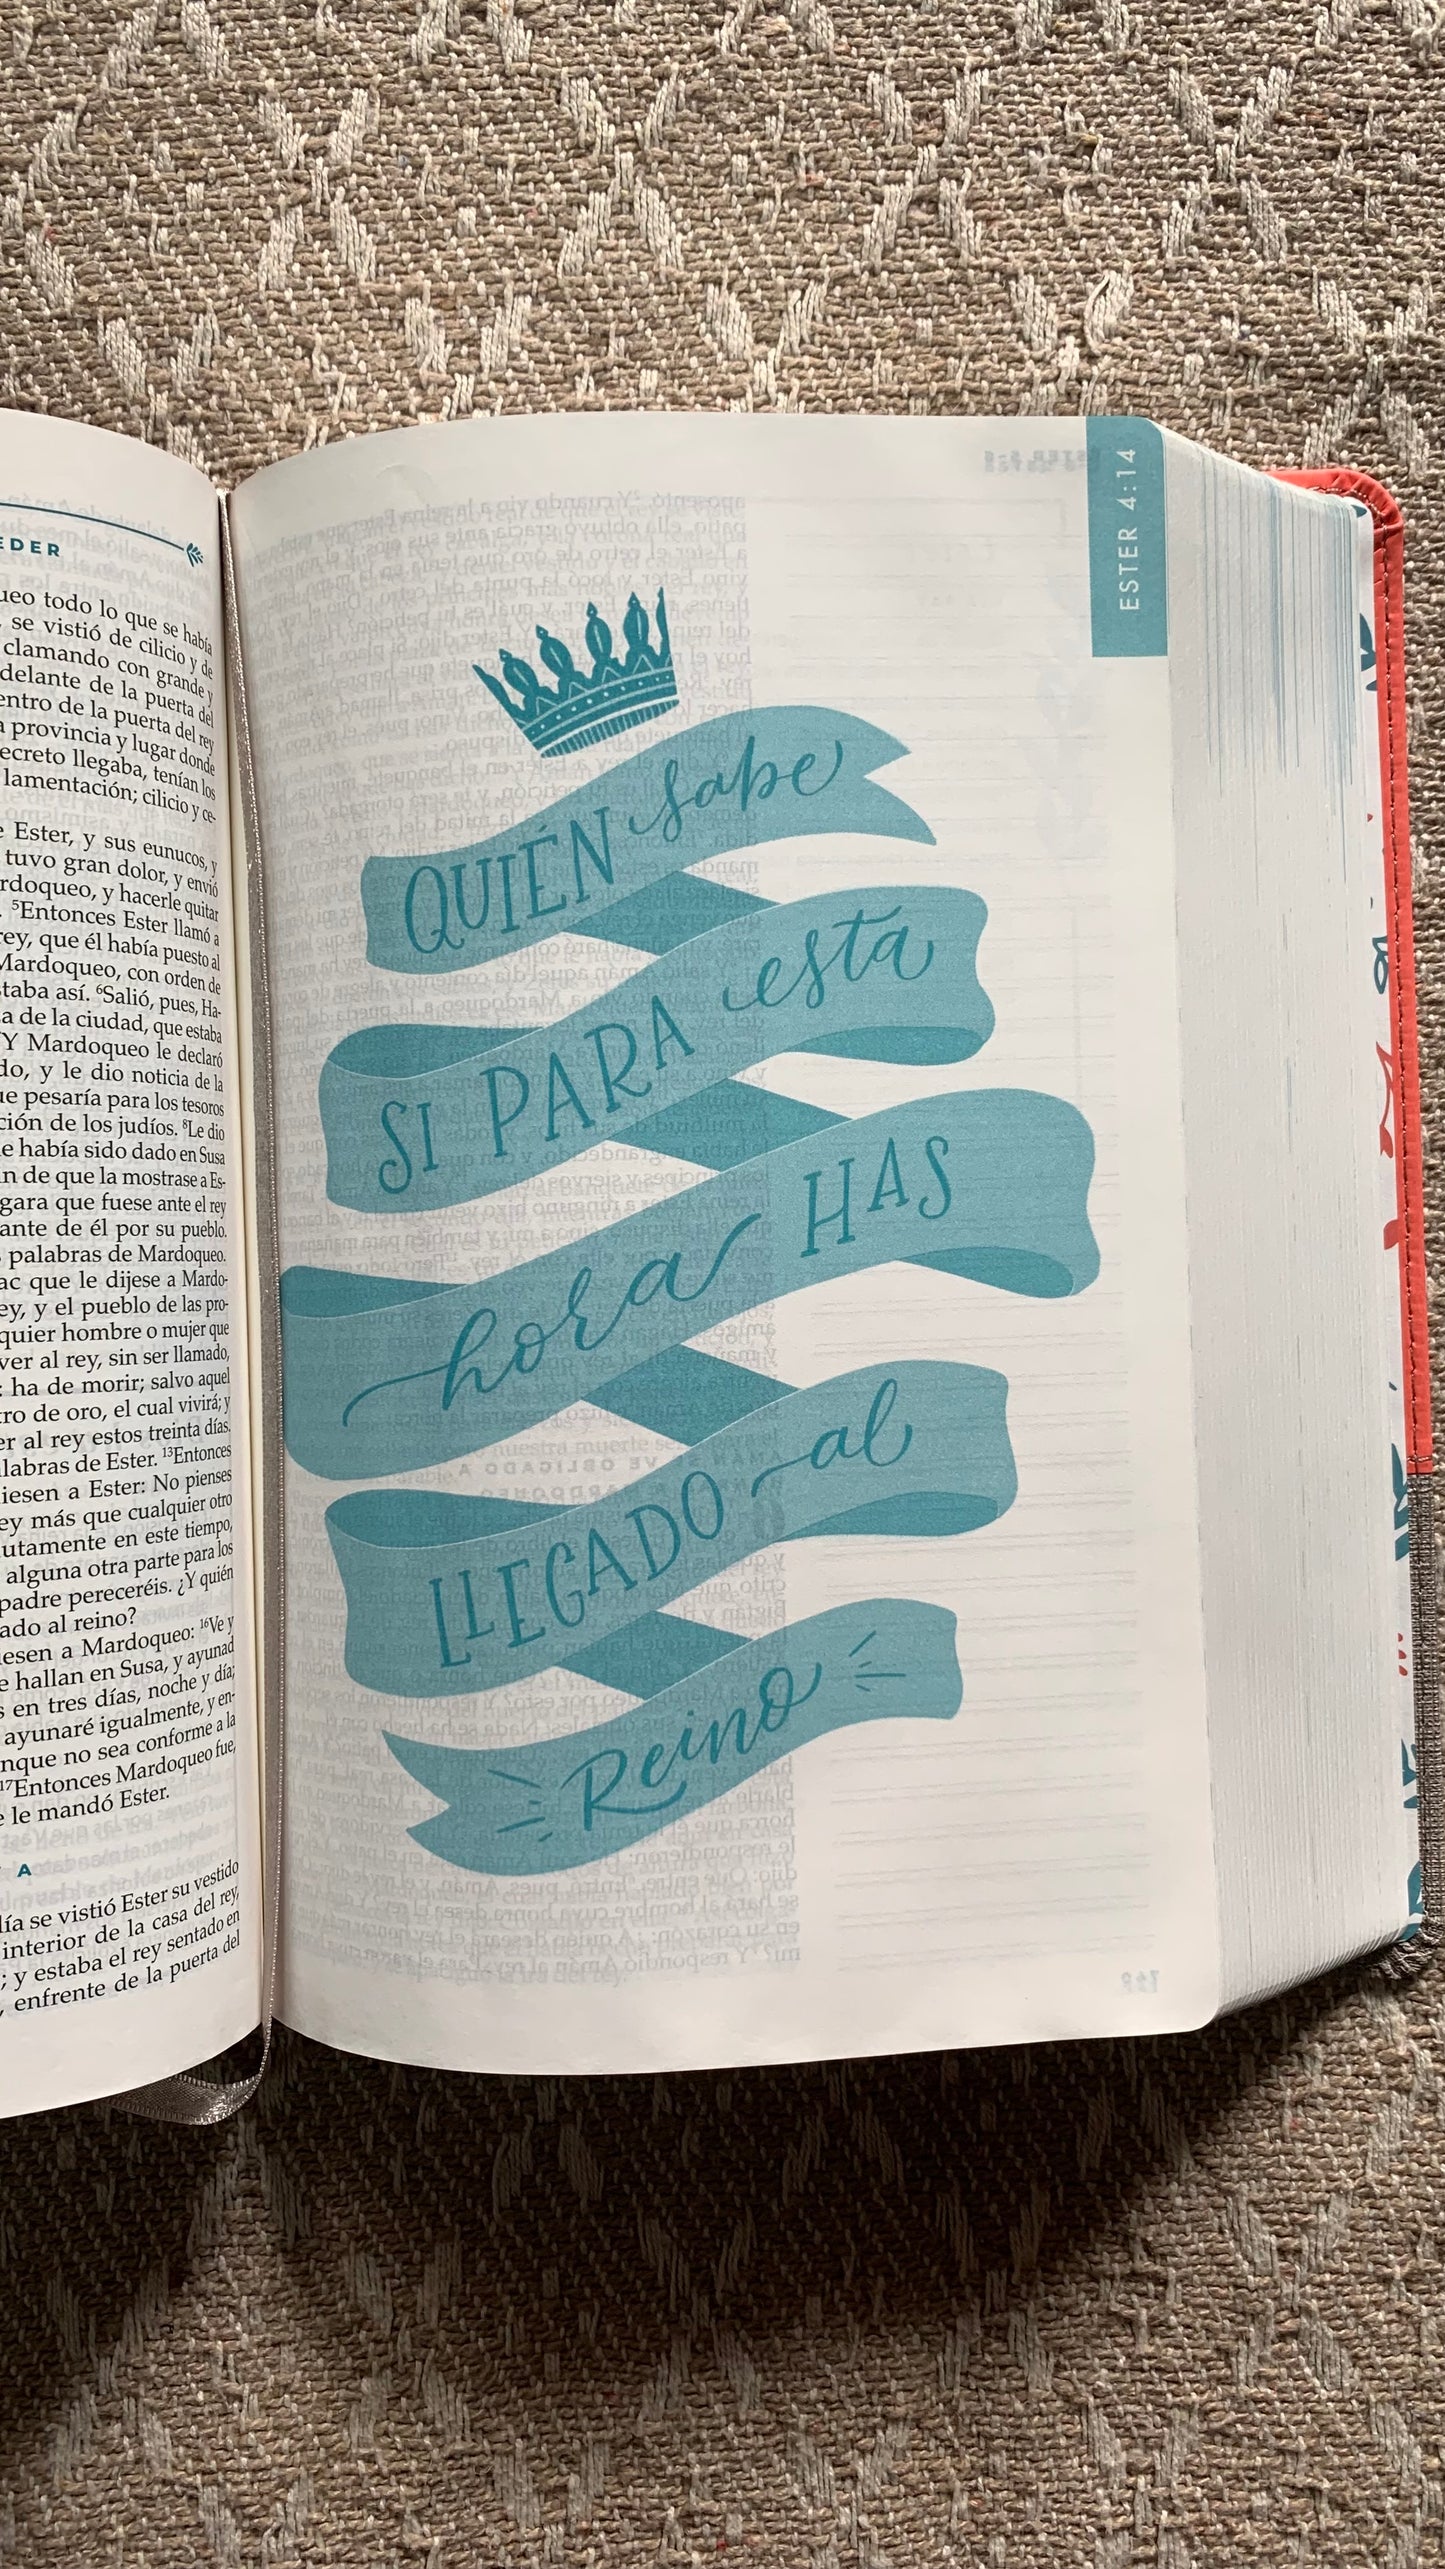 EDER
ueo todo lo que se había
, se vistió de cilicio y de
clamando con grande y
delante de la puerta del
entro de la puerta del rey
a provincia y lugar donde
ecreto llegaba, tenían los
lamentación; cilicio y ce-
e Ester, y sus eunucos, y
tuvo gran dolor, y envió
rdoqueo, y hacerle quitar
. ⁵Entonces Ester llamó a
rey, que él había puesto al
Mardoqueo, con orden de
staba así. ⁶Salió, pues, Ha-
a de la ciudad, que estaba
⁷Y Mardoqueo le declaró
do, y le dio noticia de la
ue pesaría para los tesoros
ción de los judíos. ⁸Le dio
e había sido dado en Susa
in de que la mostrase a Es-
gara que fuese ante el rey
ante de él por su pueblo.
s palabras de Mardoqueo.
ac que le dijese a Mardo-
ey, y el pueblo de las pro-
quier hombre o mujer que
ver al rey, sin ser llamado,
: ha de morir; salvo aquel
tro de oro, el cual vivirá; y
er al rey estos treinta días.
alabras de Ester. ¹³Entonces
diesen a Ester: No pienses
ey más que cualquier otro
lutamente en este tiempo,
alguna otra parte para los
padre pereceréis. ¿Y quién
ado al reino?
iesen a Mardoqueo: ¹⁶Ve y
e hallan en Susa, y ayunad
s en tres días, noche y día;
ayunaré igualmente, y en-
nque no sea conforme a la
¹⁷Entonces Mardoqueo fue,
e le mandó Ester.
A
día se vistió Ester su vestido
interior de la casa del rey,
; y estaba el rey sentado en
, enfrente de la puerta del
ESTER 4:14
QUIÉN sabe
SI PARA esta
hora HAS
LLEGADO al
Reino